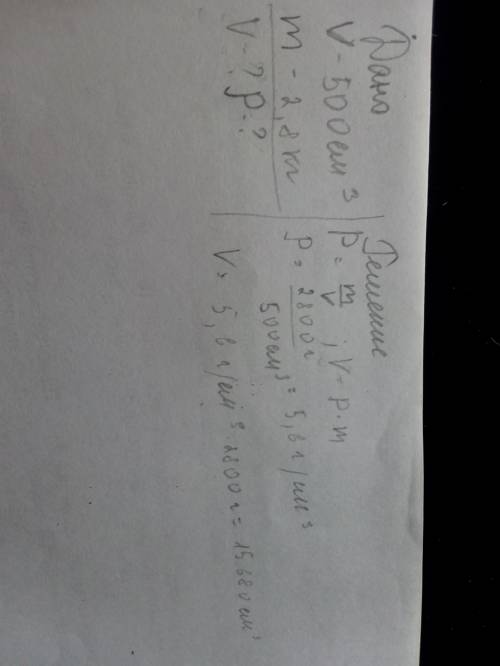 Дано
V - 500 см³
m - 2,8 кг
V - ? P - ?
Решение
P = m/V ; V = P · m
P = 2800 г / 500 см³ = 5,6 г/см³
V = 5,6 г/см³ · 2800 г = 15680 см³